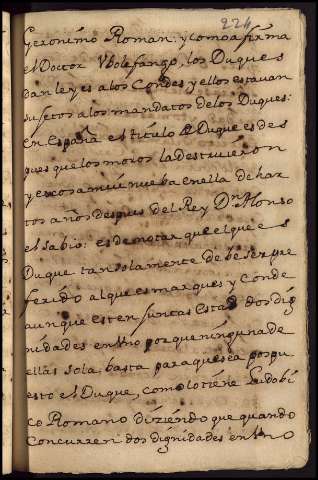 224
Geronimo Roman: y como afirma
el Doctor Vbolfango, los Duques
dan leyes a los Condes y ellos estavan
sujetos a los mandatos de los Duques:
en España el titulo de Duque es des
pues que los moros la destruieron
y es cosa muy nueba en ella de har
tos años despues del Rey Dn Alonso
el sabio: es de notar que el que es
Duque tan solamente debe ser pre
ferido al que es marques y conde
aunque esten juntas estas dos dig
nidades en Vno porque ninguna de
ellas sola, basta para que sea pospu
esto el Duque, como lo tiene Ludobi
co Romano diziendo que quando
concurren dos dignidades en Vno